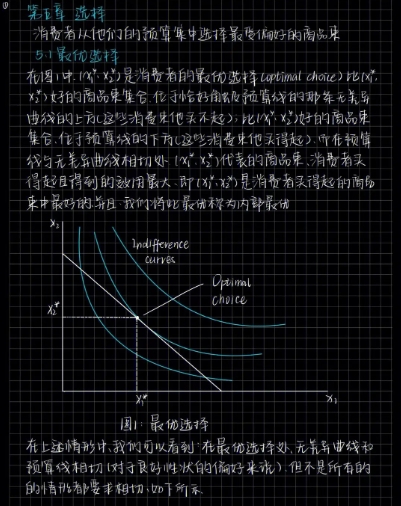 ①
第五章 选择
消费者从他们的预算集中选择最受偏好的商品束
5.1 最优选择
在图1中.(x₁*,x₂*)是消费者的最优选择(optimal choice).比(x₁*,
x₂*)好的商品束集合.位于恰好触及预算线的那条无差异
曲线的上方(这些消费束他买不起);比(x₁*,x₂*)好的商品束
集合.位于预算线的下方(这些消费束他买得起).所在预算
线与无差异曲线相切处.(x₁*,x₂*)代表的商品束.消费者买
得起且得到的效用最大.即(x₁*,x₂*)是消费者买得起的商品
束中最好的.并且.我们将此最优称为内部最优
x₂
Indifference
curves
Optimal
choice
x₂*
x₁*
x₁
图1:最优选择
在上述情形中,我们可以看到:在最优选择处,无差异曲线和
预算线相切(对于良好性状的偏好来说).但不是所有的
的情形都要求相切,如下所示.